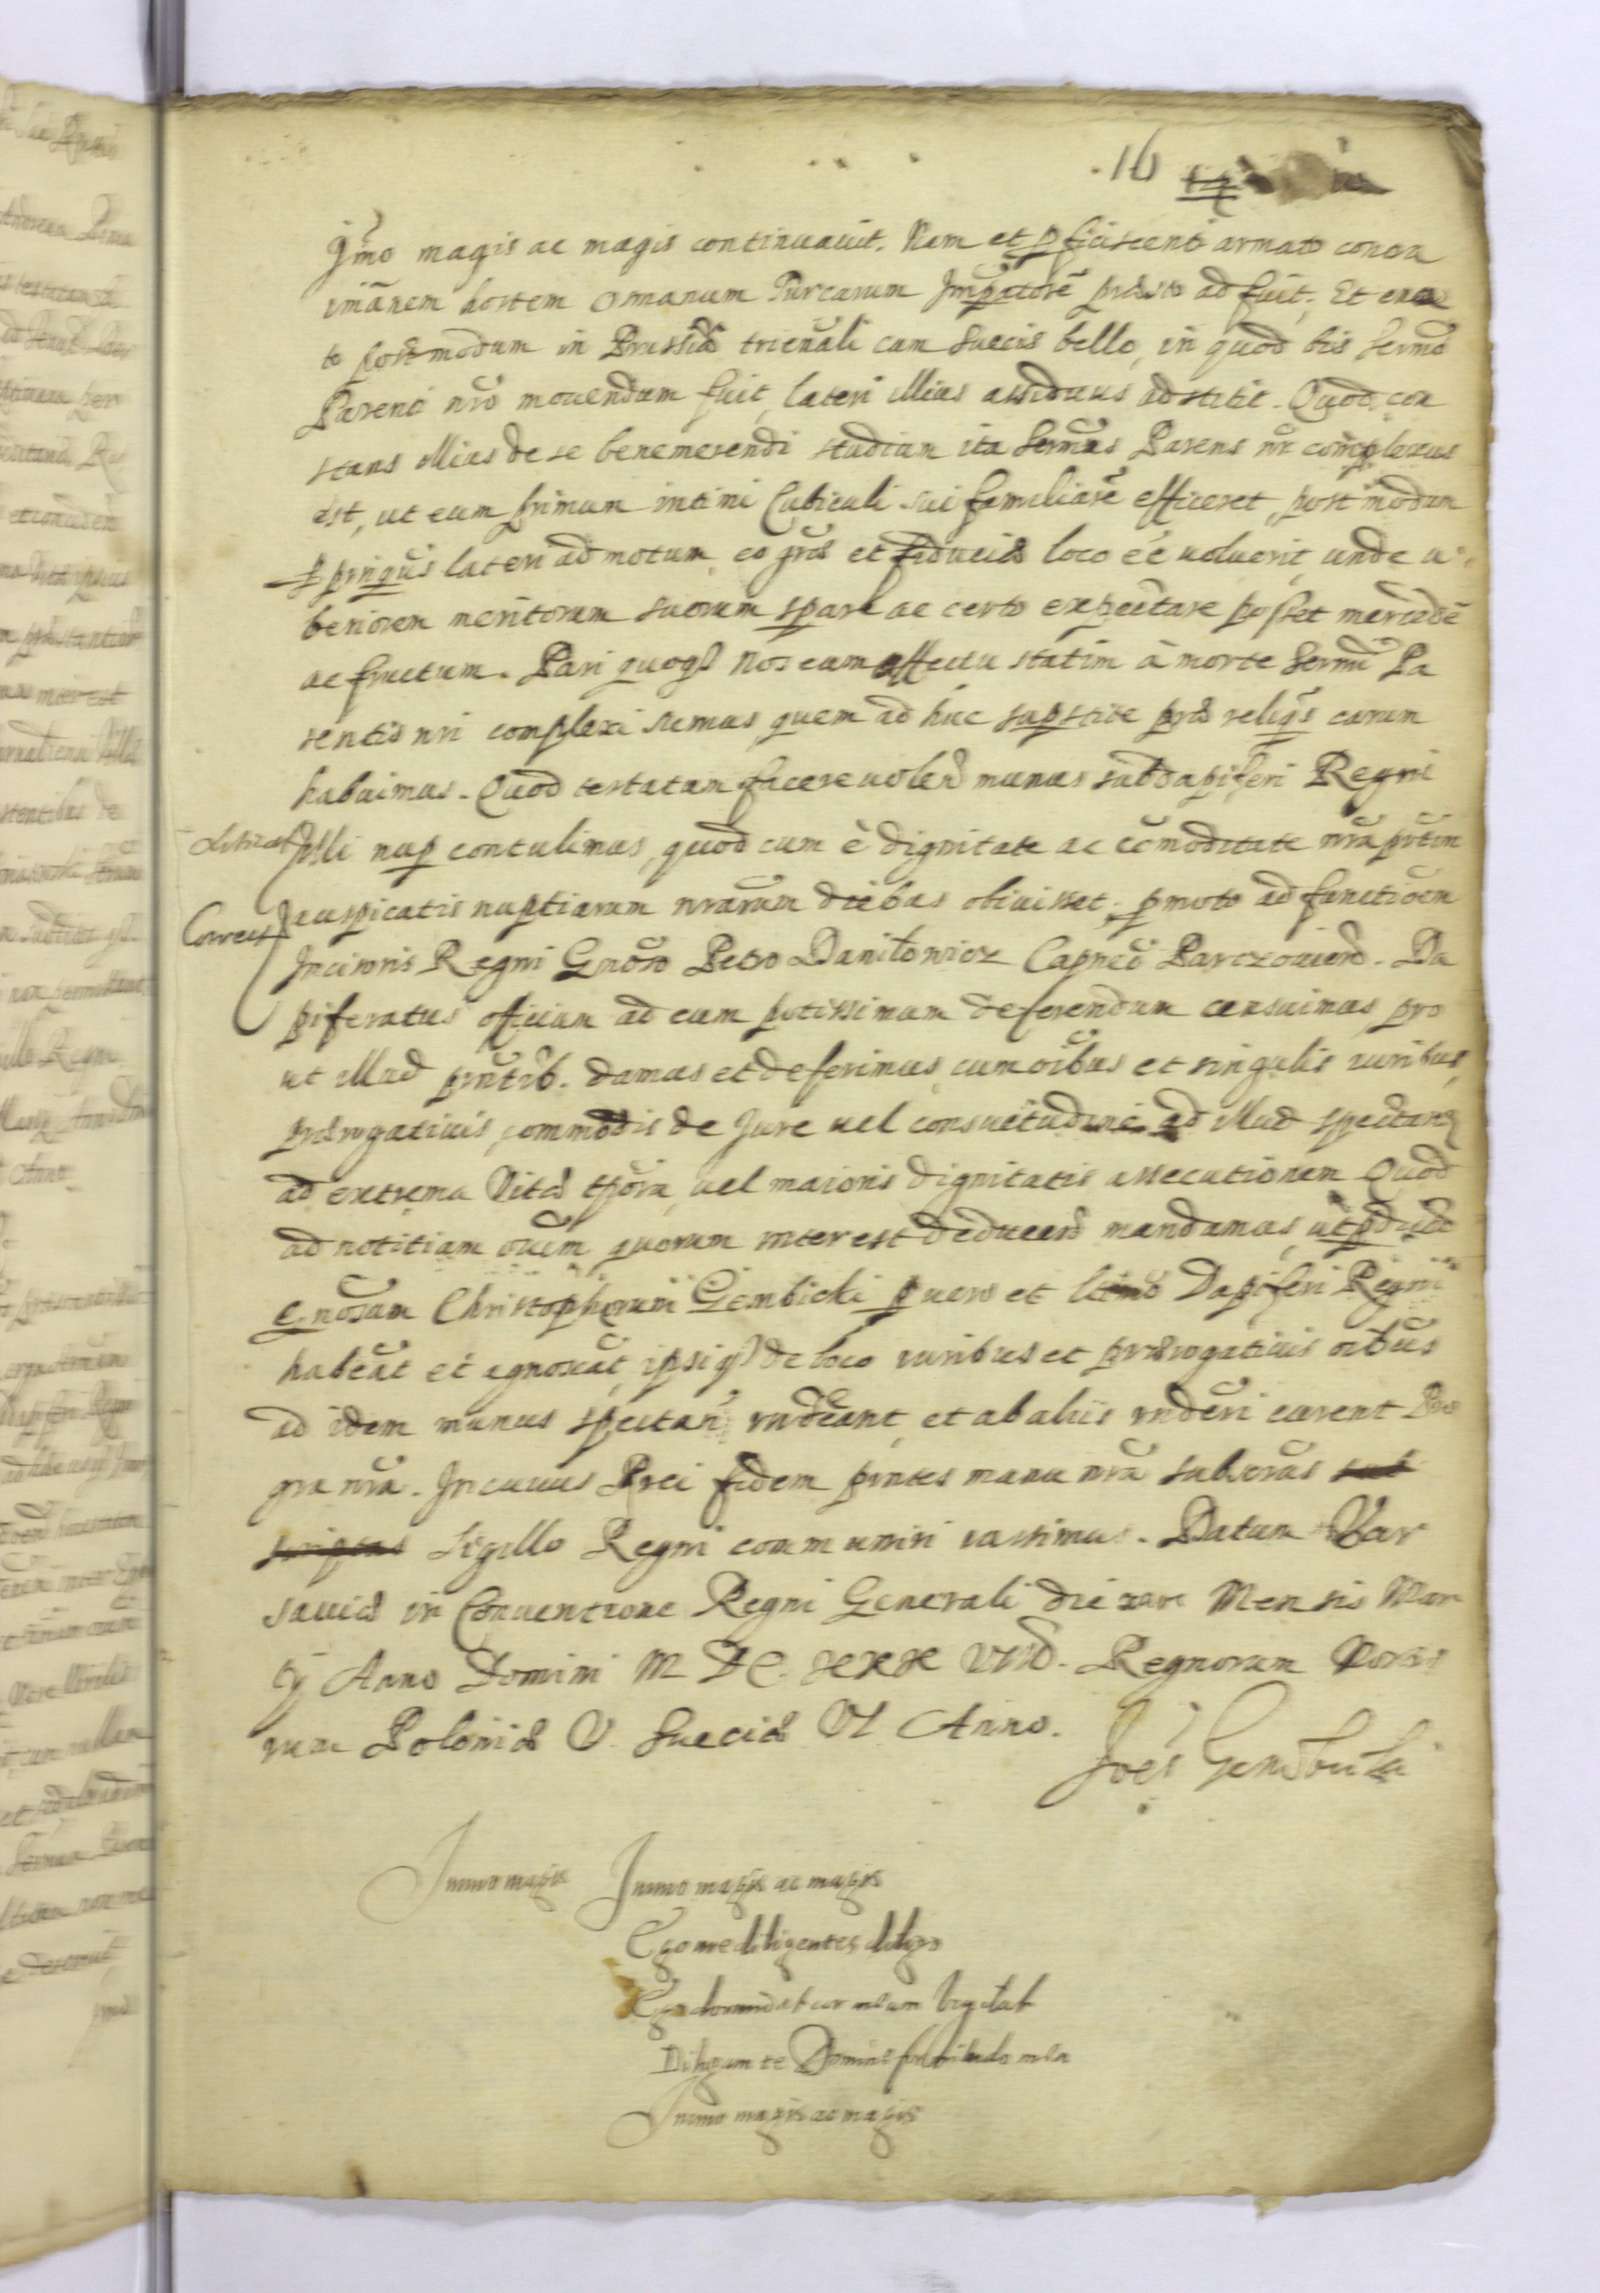 16
Im̃o magis ac magis continuavit. Nam et pficiscenti armato contra
imãnem hostem Osmanum Turcarum Impatorẽ præsto ad fuit. Et exac
to postmodum in Prussia trienali cum Suecis bello, in quod bis Sermo
Parenti nrõ movendum fuit, lateri illius assiduus adstitit. Quod con
stans illius de se benemerendi studium ita Sermus Parens nr complexus
est, ut eum primum intimi Cubiculi sui familiarẽ efficeret, post modum
ppinquus lateri admotum, eo grãe et fiduciæ loco eẽ voluerit, unde u
beriorem meritorum suorum spare ac certo expectare posset mercedẽ
ac fructum. Pari quoq nos eum affectu statim à morte Sermi Pa
rentis nri complexi sumus quem ad huc supstite præ reliqs carum
habuimus. Quod testatum facere volen munus subdapiferi Regni
Illi nup contulimus, quod cum è dignitate ac com̃oditate nrã prtim
auspicatis nuptiarum nrarum diebus obiuisset, pmoto ad functioẽm
Correct
Incisoris Regni Gnõso Petro Daniłowicz Capneo Parczovien. Da
piferatus officium ad eum potissimum deferendum censuimus pro
ut illud prntib. damus et deferimus, cum oibus et singulis iuribus,
prærogativis, commodis de Jure vel consuetudine ad illud spectan
ad extrema Vitæ tpora, vel maioris dignitatis assecutionem Quod
ad notitiam ouim quorum interest deducen mandamus, ut pdictũ
Gnosum Christophorum Gembicki p vero et ltimo Dapifero Regni
habeãt et agnoscãt, ipsiq de loco iuribus et prærogativis oibus
ad idem munus spectan rndeant, et ab aliis rnderi curent Pro
gra nrã. In cuius Rei fidem prntes manu nrã subscras sub
scriptas Sigillo Regni communiri iussimus. Datum Var
saviæ in Conventione Regni Generali die xxv Mensis Mar
tij Anno Domini M DC. XXX VIII. Regnorum Nostro
rum Poloniæ V. Sueciæ VI Anno.
Immo magis Immo magis ac magis
Ego me diligentes diligo
Ego dormio et cor meum vigilat
Diligam te Domine fortitudo mea
Immo magis ac magis